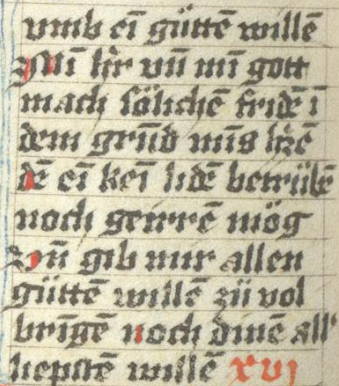 vmb eī gůttē willē
Mī hr̄ vn̄ mī gott
mach sölichē fridē ī
dem grūd mīs h̄zē
dē eī keī lidē betrübē
noch geirrē mög
vn̄ gib mir allen
gůttē willē zů vol
bringē noch dinē all'
liepstē willē xvj